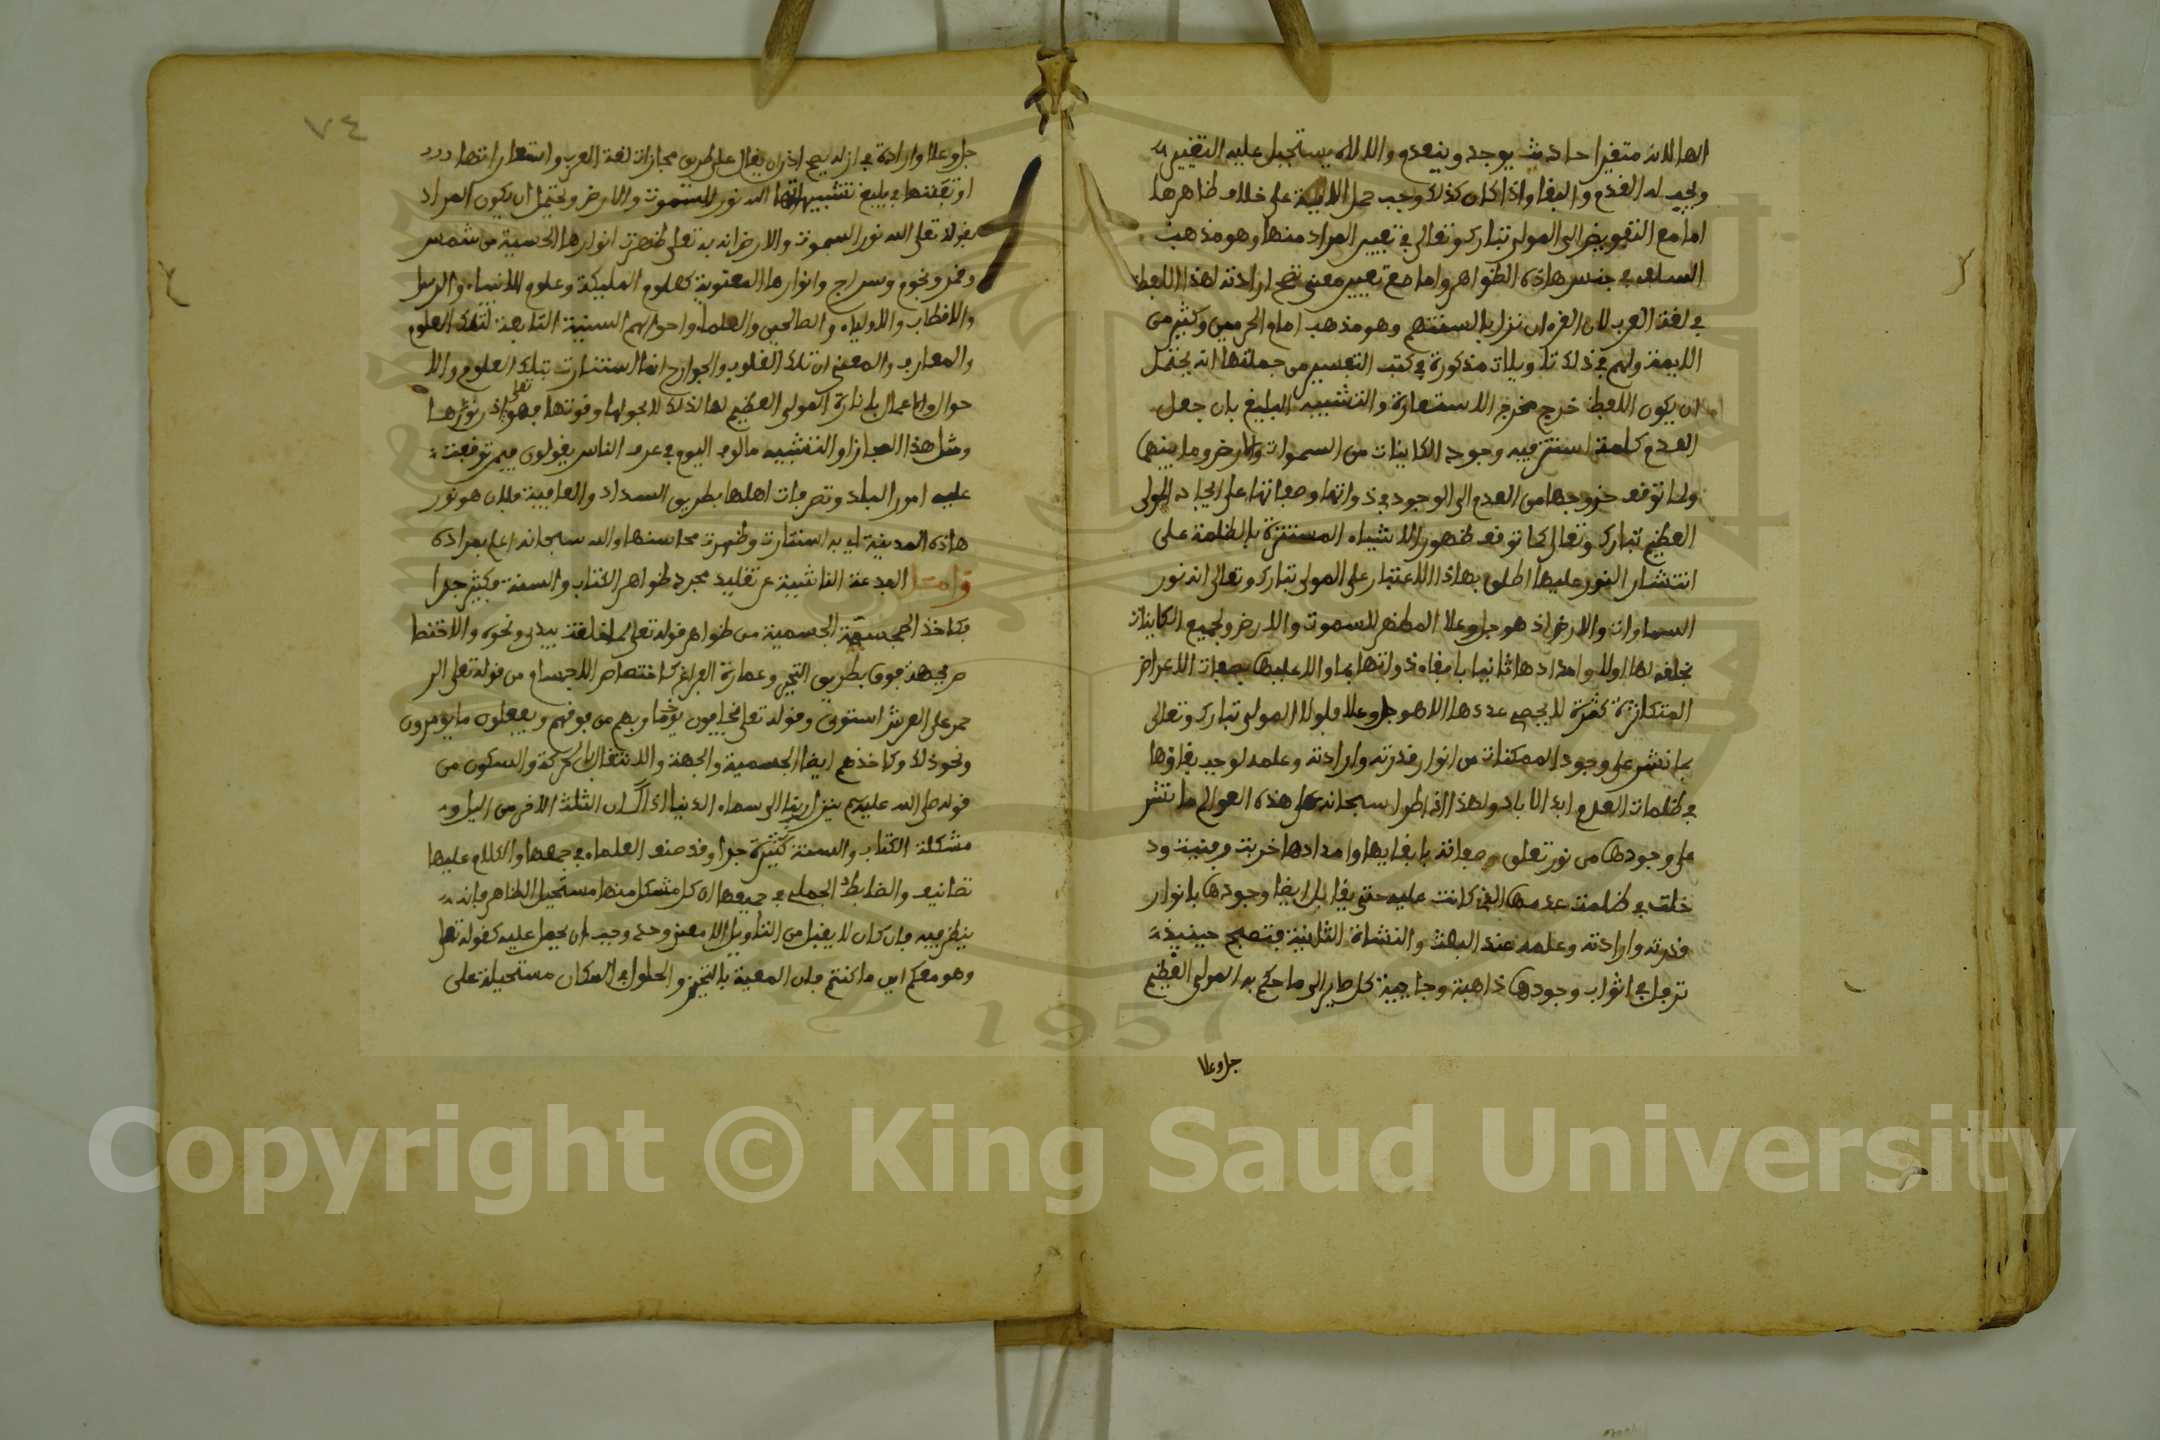 الها لانه متغير احادث يوجد وينعدم والاله يستحيل عليه التغيير
ويجب له القدم والبقا واذا كان كذلك وجب حمل الاية على خلاف ظاهرها
اما مع التفويض الى المولى تبارك وتعالى في تعيير المراد منها وهو مذهب
السلف في جنس هاذه الظواهر واما مع تعيير معنى تصح ارادته لهذا اللفظ
في لغة العرب لان القرءان نزل بالسنتهم وهو مذهب امام الحرمين وكثير من
الايمة ولهم في ذلك تاويلات مذكورة في كتب التفسير من جملتها انه يحتمل
ان يكون اللفظ خرج مخرج الاستعارة والتشبيه البليغ بان جعل
العدم كظلمة استتر فيه وجود الكاينات من السموات والارض وما بينهما
ولما توقف خروجها من العدم الى الوجود في ذواتها وصفاتها على ايجاد المولى
العظيم تبارك وتعالى كما توقف ظهور الاشياء المستترة بالظلمة على
انتشار النور عليها اطلق بهاذا الاعتبار على المولى تبارك وتعالى انه نور
السماوات والارض اذ هو جل وعلا المظهر للسموت والارض ولجميع الكاينات
بخلقه لها اولا وامدادها ثانيا بابقاء ذواتها بما والا عليها بصفات الاعراض
المتكاثرة كثرة لا يحصي عددها الا هو جل وعلا فلولا المولى تبارك وتعالى
بما نشر على وجود الممكنات من انوار قدرته وارادته وعلمه لوجب بقاؤها
في ظلمات العدم ابد الاباد ولهذا اذا طوا سبحانه على هذه العوالم ما نشر
على وجودها من نور تعلق صفاته بابقايها وامدادها خربت وفنيت ود
خلت في ظلمت عدمها التي كانت عليه حتى يقابل ايضا وجودها بانوار
قدرته وارادته وعلمه عند البعث والنشاة الثانية فتصبح حينيذ
ترفل في اثواب وجودها ذاهبة وجايية كل صاير الى ما حكم به المولى العظيم
جل وعلا
٧٤
جل وعلا وارادة في ازله يصح اذا ان يقال على طريق مجازات لغة العرب واستعاراتها
وتفننها في بليغ تشبيهاتها الله نور السموت والارض ويحتمل ان يكون المراد
بقوله تعلى الله نور السموت والارض انه به تعلى ظهرت انوارها الحسية من شمس
وقمر ونجوم وسراج وانوارها المعنوية كعلوم المليكة وعلوم الانبياء والرسل
والاقطاب والاولياء والصالحين والعلماء واحوالهم السنية التابعة لتلك العلوم
والمعارف والمعنى ان تلك القلوب والجوارح انما استنارت بتلك العلوم والا
حوال والاعمال بانارة المولى العظيم لها لذلك لا بحولها وقوتها فهو تعلى اذن نورها
ومثل هذا المجاز او التشبيه مالوف اليوم في عرف الناس يقولون فيمن توقفت
عليه امور البلد وتصرفات اهلها بطريق السداد والعافية فلان هو نور
هاذه المدينة اي به استنارت وظهرت محاسنها والله سبحانه اعلم بمراده
وامـا البدعة الناشية عن تقليد مجرد ظواهر الكتاب والسنة فكثير جدا
كاخذ المجسمة الجسمية من ظواهر قوله تعلى لما خلقت بيدي ونحوه والاختصا
ص بجهة فوق بطريق التحيز وعمارة الفراغ كاختصاص الاجسام من قوله تعلى الر
حمن على العرش استوى وقوله تعلى يخافون ربهم من فوقهم ويفعلون ما يومرون
ونحو ذلك وكاخذهم ايضا الجسمية والجهة والانتقال بالحركة والسكون من
قوله صلى الله عليه ينزل ربنا الى سماء الدنيا اذا كان الثلث الاخر من اليل و
مشكلة الكتاب والسنة كثيرة جدا وقد صنف العلماء في جمعها والكلام عليها
تصانيف والضابط الجملي في جميعها ان كل مشكل منها مستحيل الظاهر فانه
ينظر فيه فان كان لا يقبل من التاويل الا معنى وحد وجب ان يحمل عليه كقوله تعلى
وهو معكم اين ما كنتم فان المعية بالتحيز والحلول في المكان مستحيلة على
Copyright © King Saud University
1957